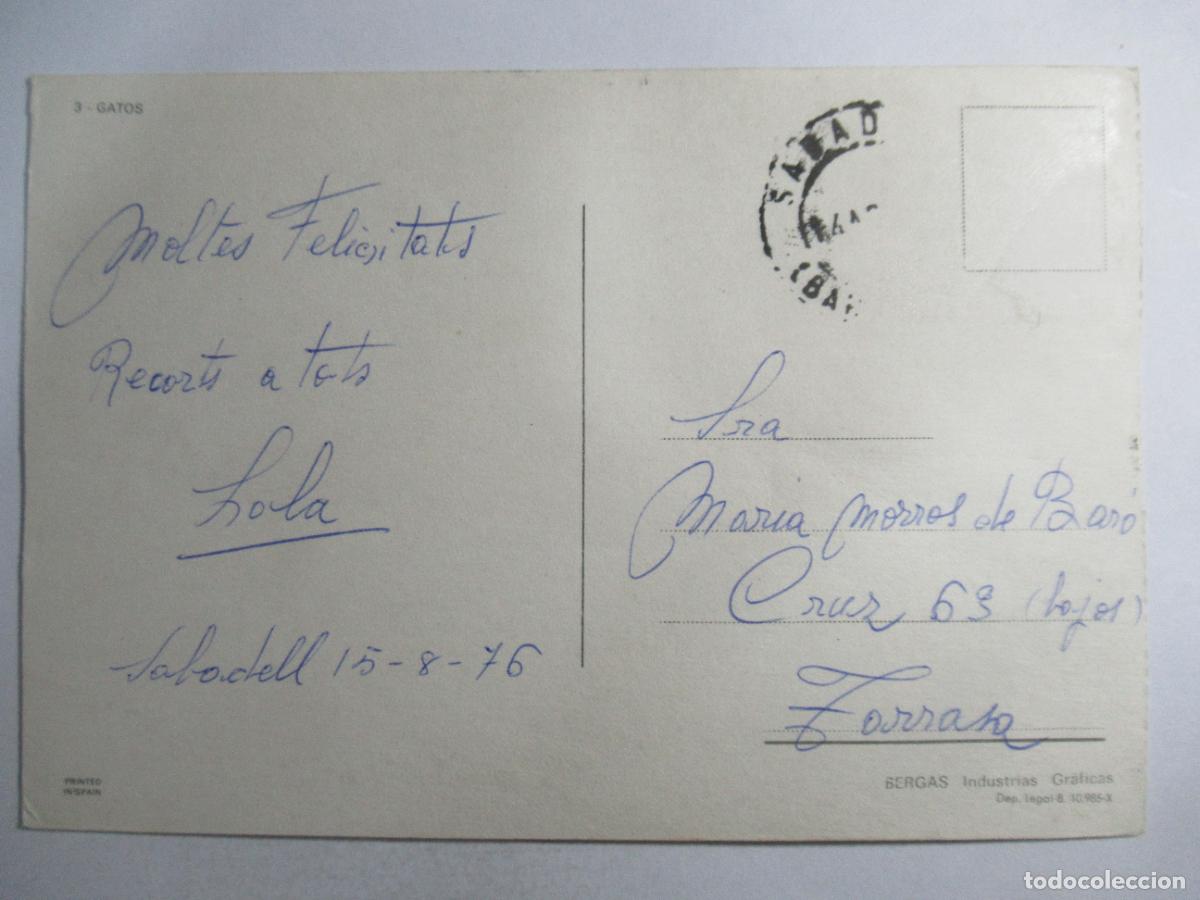 3 - GATOS
Moltes Felicitats
Recorts a tots
Lola
Sabadell 15-8-76
PRINTED
IN SPAIN
SABAD
(BA
Sra
Maria Morros de Baró
Cruz 63 (bajos)
Tarrasa
BERGAS Industrias Gráficas
Dep. legal-B. 10.985-X
todocoleccion